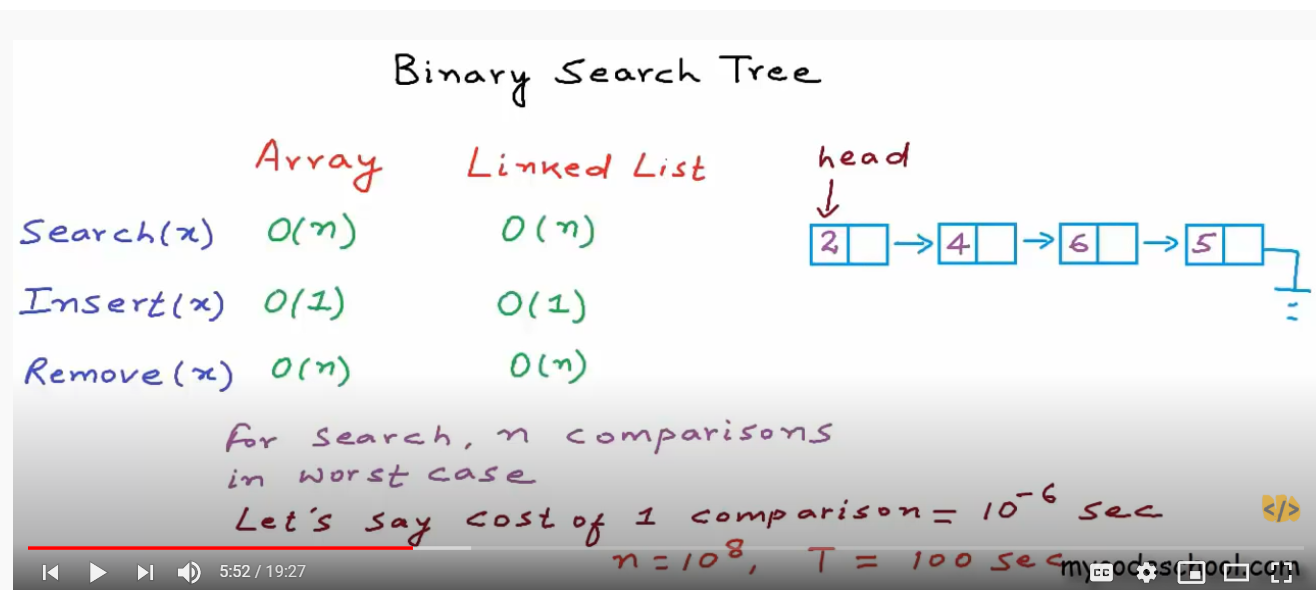 Binary Search Tree
Array Linked List head
Search(x) O(n) O(n)
2 4 6 5
Insert(x) O(1) O(1)
Remove(x) O(n) O(n)
for search, n comparisons
in worst case
Let's say cost of 1 comparison = 10⁻⁶ sec
</>
n = 10⁸, T = 100 sec
mycodeschool.com
5:52 / 19:27
CC